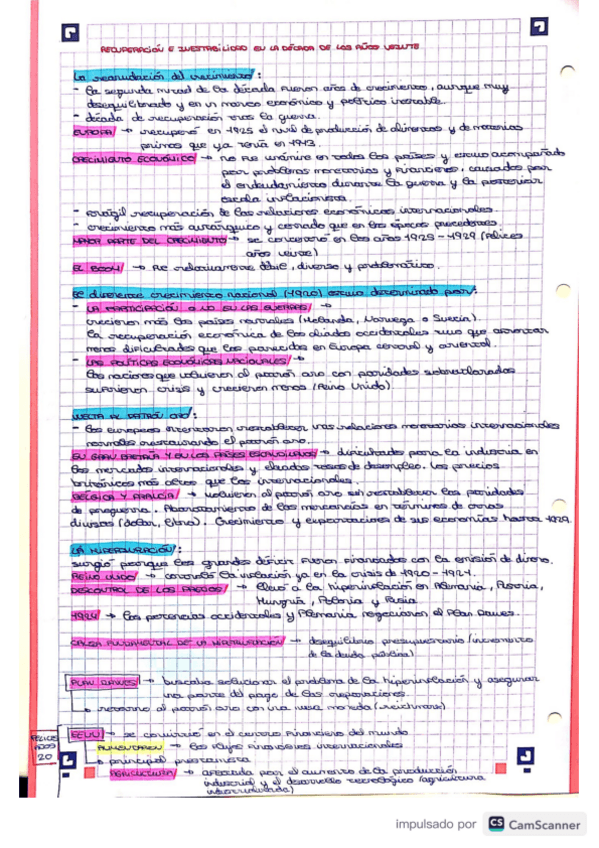 RECUPERACIÓN E INESTABILIDAD EN LA DÉCADA DE LOS AÑOS VEINTE
La reanudación del crecimiento:
- La segunda mitad de la década fueron años de crecimiento, aunque muy
desequilibrado y en un marco económico y político inestable.
- década de recuperación tras la guerra.
EUROPA → recuperó en 1925 el nivel de producción de alimentos y de materias
primas que ya tenía en 1913.
CRECIMIENTO ECONÓMICO → no fue unánime en todos los países y estuvo acompañado
por problemas monetarios y financieros, causados por
el endeudamiento durante la guerra y la posterior
escala inflacionista.
- frágil recuperación de las relaciones económicas internacionales.
- crecimiento más autárquico y cerrado que en las épocas precedentes.
MAYOR PARTE DEL CRECIMIENTO → se concentró en los años 1925-1929 (felices
años veinte)
EL BOOM → fue relativamente débil, diverso y problemático.
El diferente crecimiento nacional (1920) estuvo determinado por:
- LA PARTICIPACIÓN O NO EN LAS GUERRAS →
crecieron más los países neutrales (Holanda, Noruega o Suecia).
La recuperación económica de los aliados occidentales tuvo que afrontar
menos dificultades que las padecidas en Europa central y oriental.
- LAS POLÍTICAS ECONÓMICAS NACIONALES →
Las naciones que volvieron al patrón oro con paridades sobrevaloradas
sufrieron crisis y crecieron menos (Reino Unido).
VUELTA AL PATRÓN ORO:
- Los europeos intentaron restablecer las relaciones monetarias internacionales
normales restaurando el patrón oro.
EN GRAN BRETAÑA Y EN LOS PAÍSES ESCANDINAVOS → dificultades para la industria en
los mercados internacionales y elevadas tasas de desempleo. Los precios
británicos más altos que los internacionales.
BÉLGICA Y FRANCIA → volvieron al patrón oro sin restablecer las paridades
de preguerra. Abaratamiento de las mercancías en términos de otras
divisas (dólar, libra). Crecimiento y exportaciones de sus economías hasta 1929.
LA HIPERINFLACIÓN:
surgió porque los grandes déficit fueron financiados con la emisión de dinero.
REINO UNIDO → controló la inflación ya en la crisis de 1920-1921.
DESCONTROL DE LOS PRECIOS → llevó a la hiperinflación en Alemania, Austria,
Hungría, Polonia y Rusia
1924 → las potencias occidentales y Alemania negociaron el Plan Dawes.
CAUSA FUNDAMENTAL DE LA HIPERINFLACIÓN → desequilibrio presupuestario (incremento
de la deuda pública)
PLAN DAWES → buscaba solucionar el problema de la hiperinflación y asegurar
una parte del pago de las reparaciones.
↳ retorno al patrón oro con una nueva moneda (reichmark)
FELICES
AÑOS
20
EEUU → se convirtió en el centro financiero del mundo
AUMENTARON → los flujos financieros internacionales
↳ principal prestamista
AGRICULTURA → afectada por el aumento de la producción
industrial y el desarrollo tecnológico (agricultura
industrializada)
impulsado por CS CamScanner